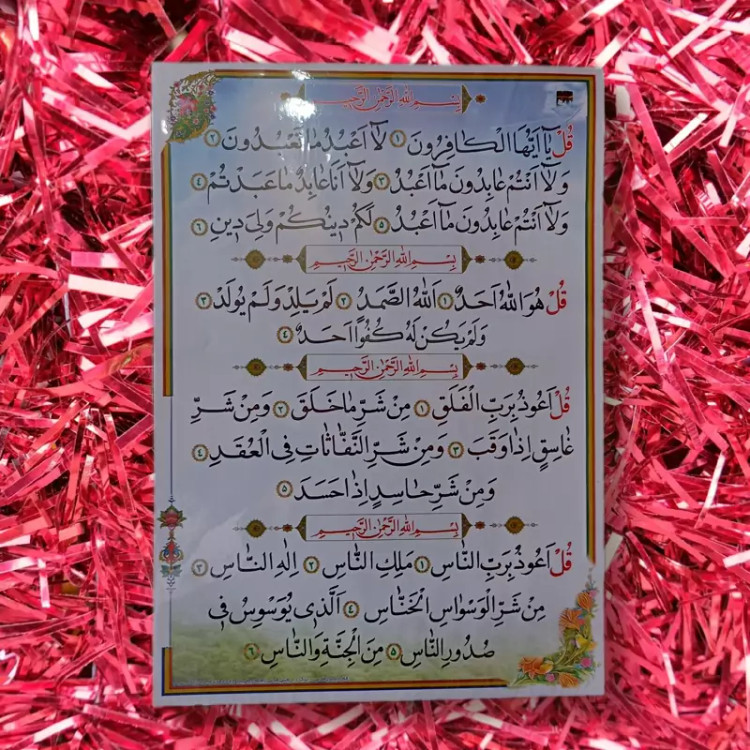 بِسْمِ اللهِ الرَّحْمٰنِ الرَّحِيمِ
قُلْ يَآ اَيُّهَا الْكَافِرُونَ ١ لَآ اَعْبُدُ مَا تَعْبُدُونَ ٢
وَلَآ اَنْتُمْ عَابِدُونَ مَآ اَعْبُدُ ٣ وَلَآ اَنَا عَابِدٌ مَا عَبَدْتُمْ ٤
وَلَآ اَنْتُمْ عَابِدُونَ مَآ اَعْبُدُ ٥ لَكُمْ دِينُكُمْ وَلِىَ دِينِ ٦
بِسْمِ اللهِ الرَّحْمٰنِ الرَّحِيمِ
قُلْ هُوَ اللهُ اَحَدٌ ١ اَللهُ الصَّمَدُ ٢ لَمْ يَلِدْ وَلَمْ يُولَدْ ٣
وَلَمْ يَكُنْ لَهُ كُفُوًا اَحَدٌ ٤
بِسْمِ اللهِ الرَّحْمٰنِ الرَّحِيمِ
قُلْ اَعُوذُ بِرَبِّ الْفَلَقِ ١ مِنْ شَرِّ مَا خَلَقَ ٢ وَمِنْ شَرِّ
غَاسِقٍ اِذَا وَقَبَ ٣ وَمِنْ شَرِّ النَّفَّاثَاتِ فِى الْعُقَدِ ٤
وَمِنْ شَرِّ حَاسِدٍ اِذَا حَسَدَ ٥
بِسْمِ اللهِ الرَّحْمٰنِ الرَّحِيمِ
قُلْ اَعُوذُ بِرَبِّ النَّاسِ ١ مَلِكِ النَّاسِ ٢ اِلٰهِ النَّاسِ ٣
مِنْ شَرِّ الْوَسْوَاسِ الْخَنَّاسِ ٤ اَلَّذِى يُوَسْوِسُ فِى
صُدُورِ النَّاسِ ٥ مِنَ الْجِنَّةِ وَالنَّاسِ ٦